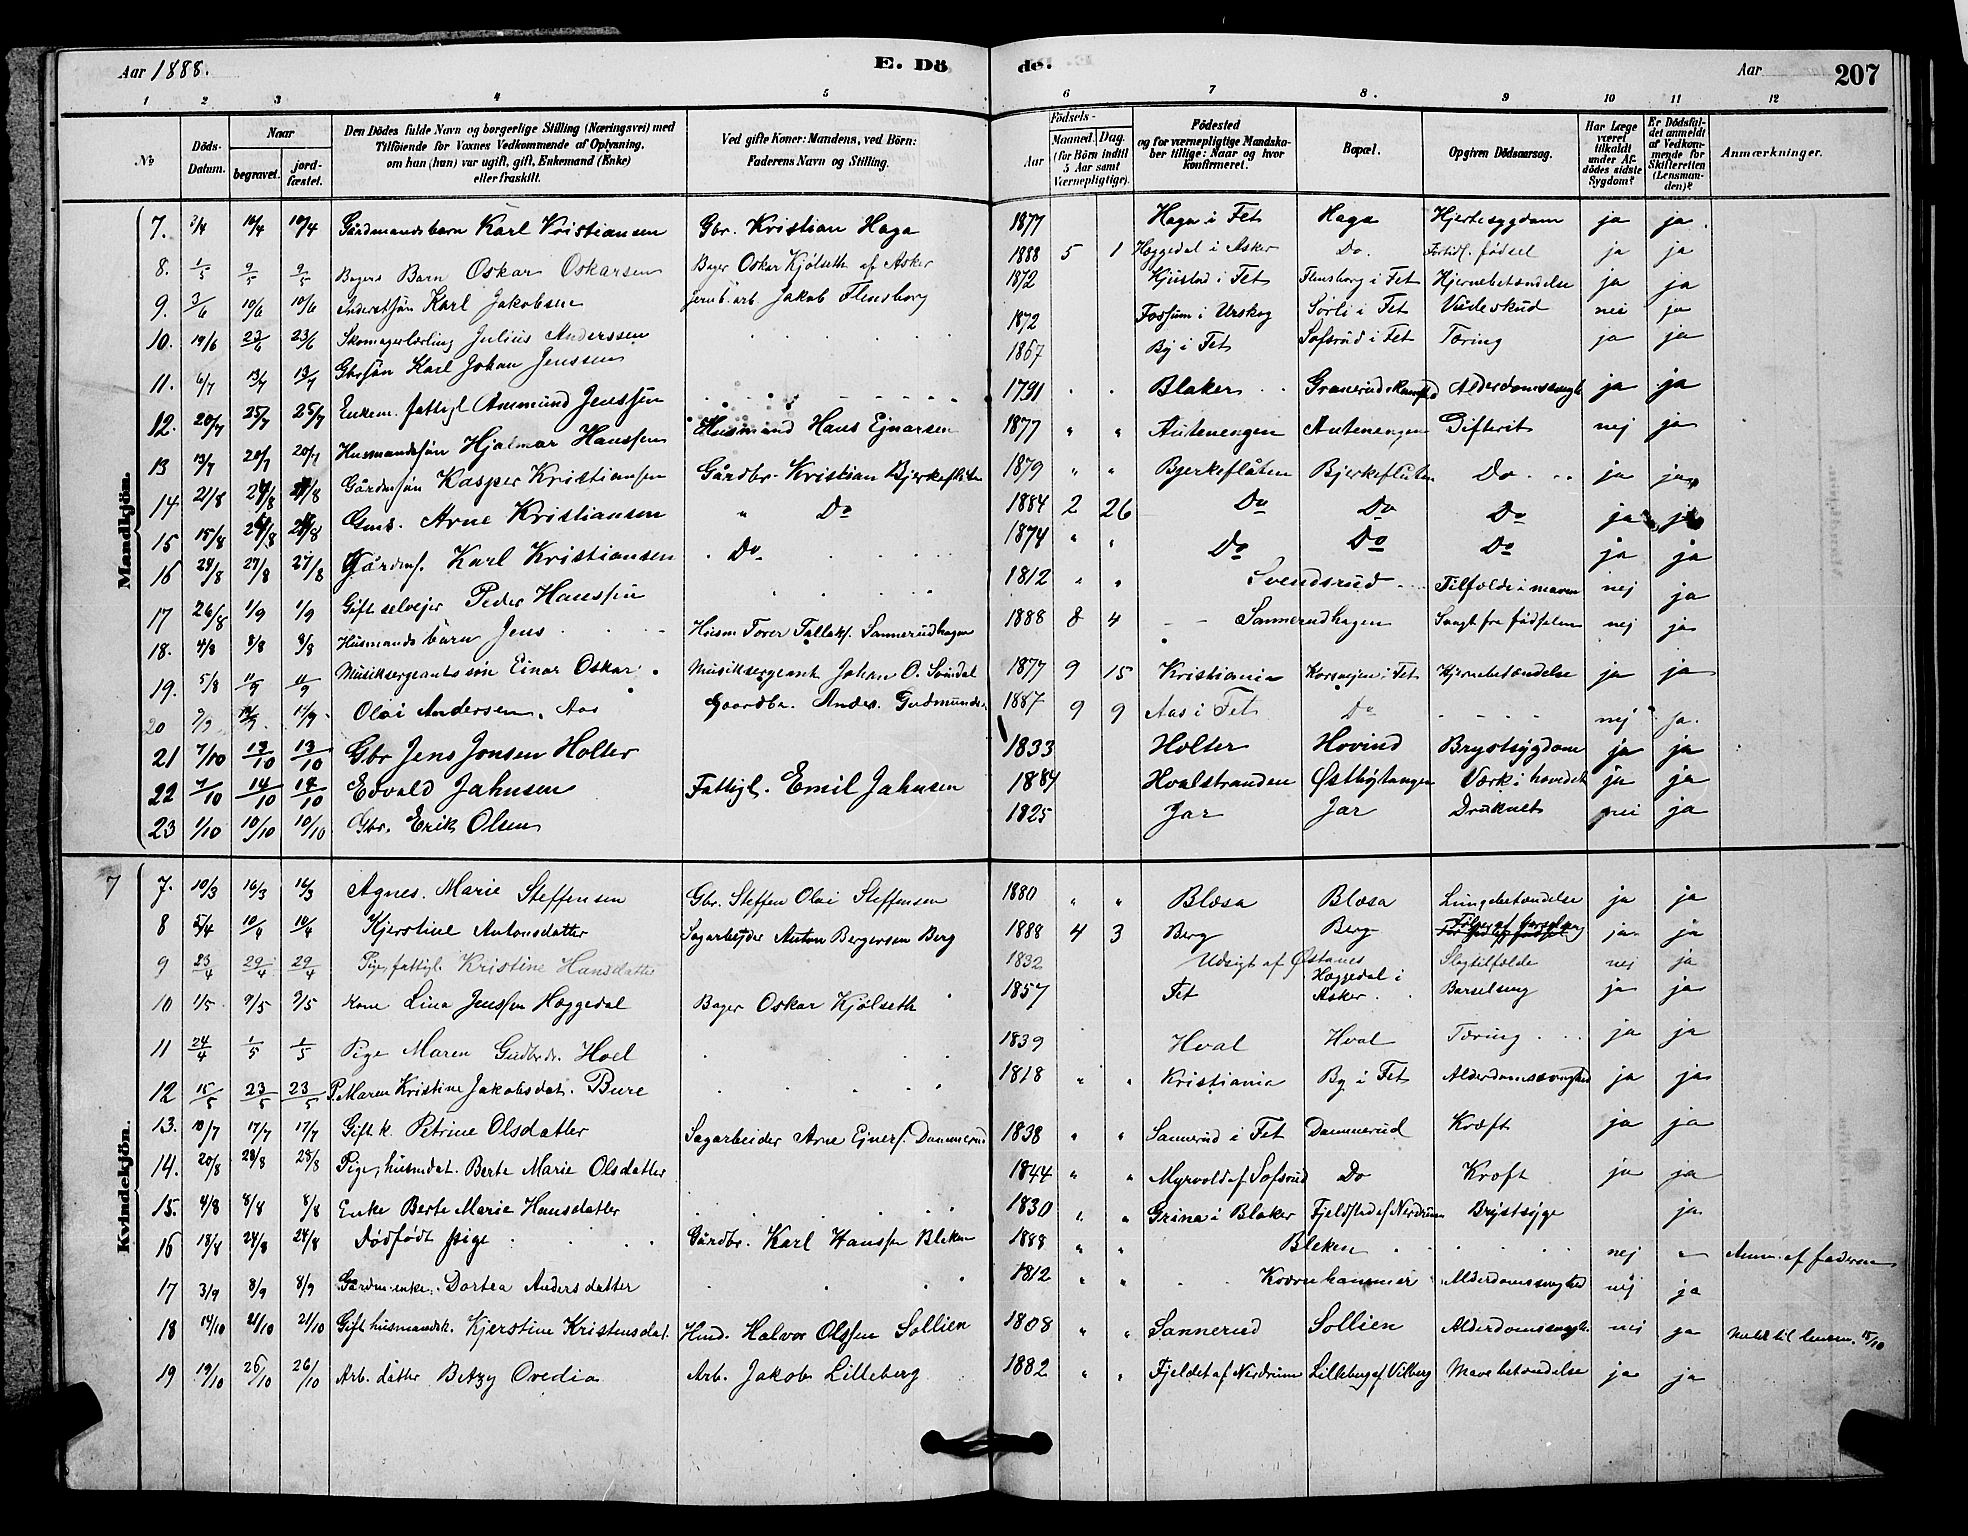 Aar 1888. E. Dö de. Aar 207
1 2 3 4 5 6 7 8. 9 10 11 12
No Döds-Datum. Naar begravet. jordfæstet. Den Dödes fulde Navn og borgerlige Stilling (Næringsvei) med Tilföiende for Voxnes Vedkommende af Oplysning, om hun (han) var ugift, gift, Enkemand (Enke) eller fraskilt. Ved gifte Koner: Mandens, ved Börn: Faderens Navn og Stilling. Födsels- Aar Maaned. Dag. (for Börn indtil 5 Aar samt Værnepligtige). Födested og for værnepligtige Mandskaber tillige: Naar og hvor konfirmeret. Bopæl. Opgiven Dödsaarsag. Har Læge været tilkaldt under Afdödes sidste Sygdom? Er Dödsfaldet anmeldt af Vedkommende for Skifteretten (Lensmanden)? Anmærkninger.
Mandkjön.
7. 2/4 10/4 10/4 Gårdmandsbarn Karl Kristiansen Gbr. Kristian Haga 1877 Haga i Fet Haga Hjertesygdom ja ja.
8. 1/5 9/5 9/5 Bagers Barn Oskar Oskarsen Bager Oskar Kjölseth af Asker 1888 5 1 Hæggedal i Asker Do. Fortidl. fødsel ja ja
9. 3/6 10/6 10/6 Inderstsön Karl Jakobsen jernb. arb. Jakob Flensborg 1872 Kjustad i Fet Flensborg i Fet Hjernebetændelse ja ja
10. 19/6 23/6 23/6 Skomagerlærling Julius Anderssen 1872 Fossum i Urskog Sørli i Fet Vådeskud nei ja
11. 6/7 13/7 13/7 Gbrsön Karl Johan Jenssen 1867 By i Fet Sofsrud i Fet Tæring ja ja
12. 20/7 25/7 25/7 Enkem. fattigl Ammund Jenssön 1791 Blaker Granerud Alderdomssvagh ja ja
13 13/7 20/7 20/7 Husmandssön Hjalmar Hanssen Husmand Hans Ejnarsen 1877 " " Autenengen Autenengen Difterit nej ja
14. 21/8 24/8 24/8 Gårdmsön Kasper Kristiansen Gårdbr. Kristian Bjerkeflåten 1879 " " Bjerkeflåten Bjerkeflåten Do ja ja
15 15/8 24/8 24/8 Gms. Arne Kristiansen " Do 1884 2 26 Do Do Do ja ja
16 24/8 27/8 27/8 Gårdms. Karl Kristiansen Do 1874 " " Do Do Do ja ja
17 26/8 1/9 1/9 Gift selvejer Peder Hanssen 1812 " " Svendsrud Tilfælde i maven nej ja
18. 4/8 8/8 8/8 Husmandsbarn Jens Husm Torer Tollefs. Sannerudhagen 1888 8 4 Sannerudhagen Svagt fra fødselen nej ja
19. 5/8 11/9 11/9 Musiksergeantssön Einar Oskar Musiksergeant Johan O. Svindal 1877 9 15 Kristiania Korsvejen i Fet Hjernebetændelse ja ja
20 9/9 14/9 14/9 Olai Andersen. Aas Gaardbr. Anders. Gudmunds. 1887 9 9 Aas i Fet Do nej ja.
21 7/10 13/10 13/10 Gbr Jens Jonsen Holter 1833 Holter Hovind Brystsygdom ja ja
22 7/10 14/10 14/10 Edvald Jahnsen Fattigl. Emil Jahnsen 1884 Hvalstranden Østbytangen Værk i hovedet ja ja
23 1/10 10/10 10/10 Gbr. Erik Olsen 1825 Jar Jar Druknet nei ja
Kvindekjön.
7 7. 10/3 16/3 16/3 Agnes. Marie Steffensen Gbr. Steffen Olai Steffensen 1880 " " Blæsa Blæsa Lungebetændelse ja ja
8 5/4 10/4 10/4 Kjerstine Antonsdatter Sagarbejder Anton Bergersen Berg 1888 4 3 Berg Berg ja ja
9 23/4 29/4 29/4 Pige, fattigl. Kristine Hansdatter 1832 Udsigt af Østanes Slagtilfælde nej ja
10 1/5 9/5 9/5 Kone Lina Jenssen Hæggedal Bager Oskar Kjölseth 1857 Fet Hæggedal i Asker. Barselseng ja ja
11 24/4 1/5 1/5 Pige Maren Gudbrds. Hoel 1839 Hval Hval Tæring ja ja
12 15/5 23/5 23/5 P. Maren Kristine Jakobsdat. Bure 1818 " " Kristiania By i Fet Alderdomssvaghed ja ja
13. 10/7 17/7 17/7 Gift k. Petrine Olsdatter Sagarbeider Arne Ejners. Dammerud 1838 " " Sannerud i Fet Dammerud Kræft ja ja
14. 20/8 28/8 28/8 Pige, husmdat. Berte Marie Olsdatter 1844 " " Myrvold af Sofsrud Do Kræft ja ja
15. 4/8 8/8 8/8 Enke Berte Marie Hansdatter 1830 " " Grina i Blaker Fjeldstad af Nordrum Brystsyge ja
16 18/8 24/8 24/8 Dødfødt pige Gårdbr. Karl Hanssen Bleken 1888 " " Bleken nej " Anm. af faderen
17 3/9 8/9 8/9 Gårdm.enke. Dortea Andersdatter 1812 " " Kværnhammer Alderdomssvaghed nej ja
18 14/10 21/10 21/10 Gift husmandsk. Kjerstine Kristensdat. Hmd. Halvor Olssen Sollien 1808 " " Sannerud Sollien Alderdomssvagh. nej ja Meldt til lensm. 15/10
19 19/10 26/10 26/10 Arb. datter Betzy Ovedia Arb. Jakob Lilleberg 1882 " " Fjeldet af Nordrum Lilleberg af Vilberg Mavebetændelse ja ja